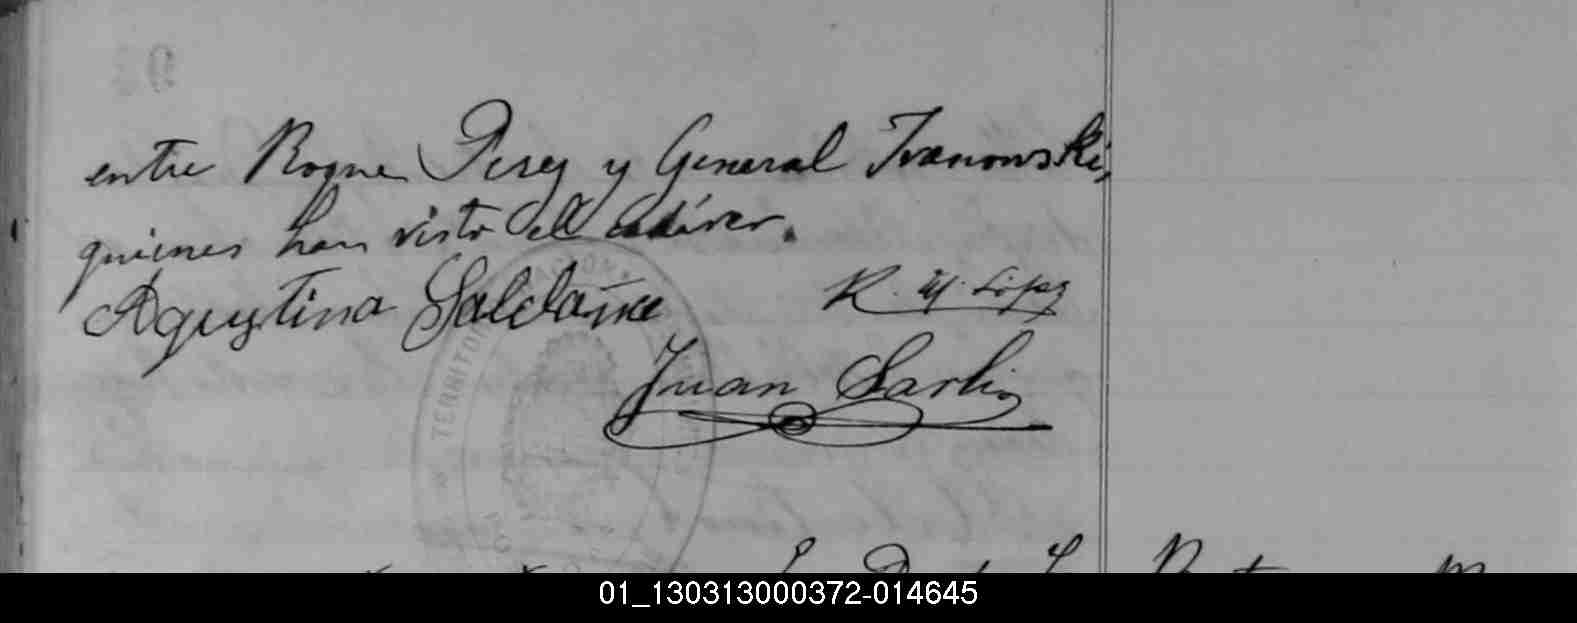 entre Roque Perez y General Ivanowski,
quienes han visto el cadáver.
Agustina Saldaña
R. M. López
Juan Sarli
TERRITORIO NACIONAL
01_130313000372-014645